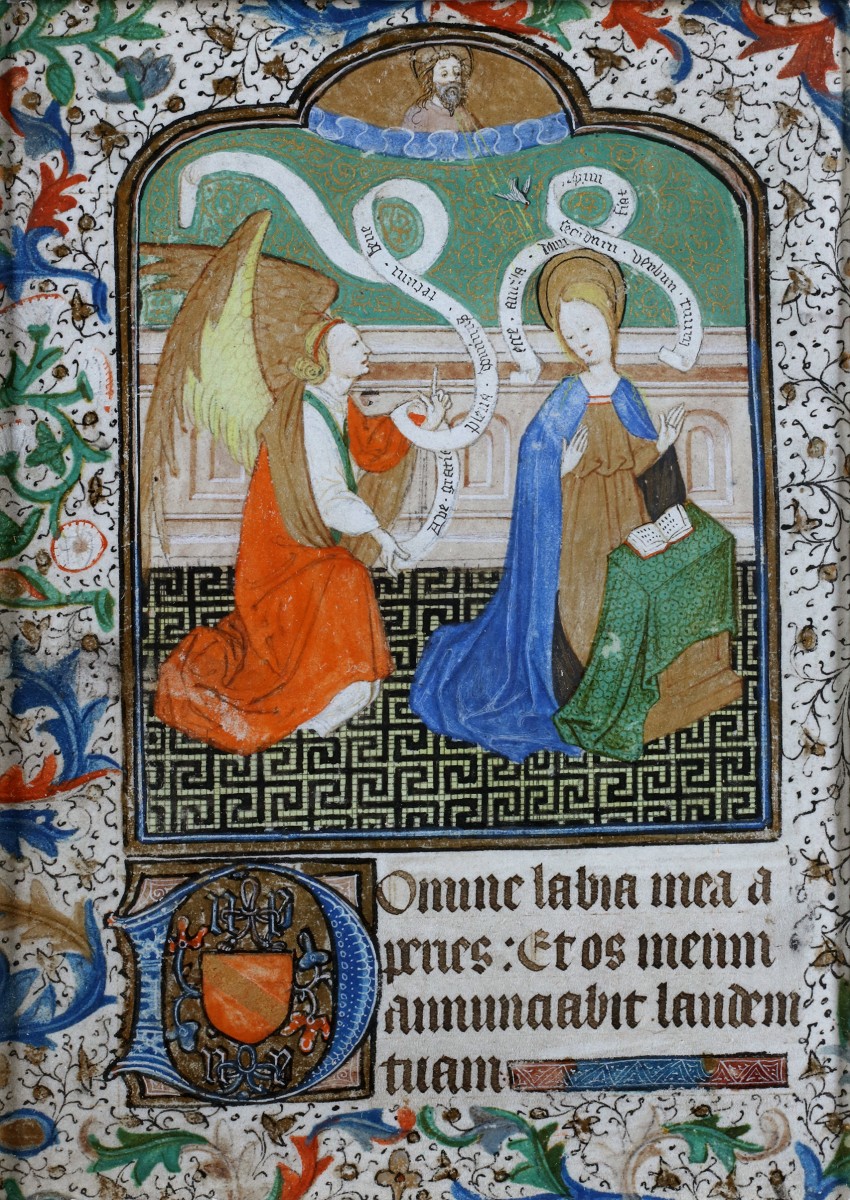 Ave · gratie · plena · dominus · tecum · bene
ecce · ancilla · dmi
fiat michi
secundum · verbum · tuum
DOmine labia mea a
peries : Et os meum
annunciabit laudem
tuam